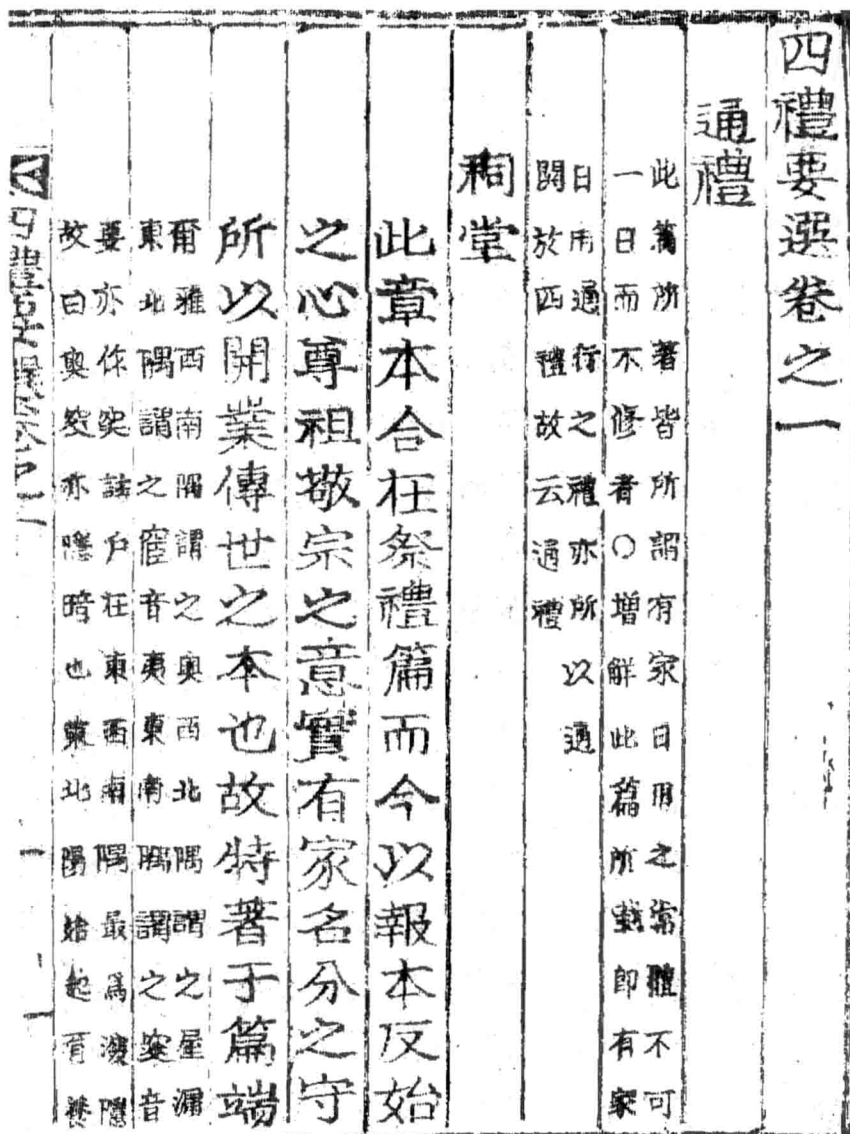 四禮要選卷之一
通禮
此篇所著皆所謂有家日用之常體不可
一日而不修者○增解此篇所載卽有家
日用通行之禮亦所以通
關於四禮故云通禮
祠堂
此章本合在祭禮篇而今以報本反始
之心尊祖敬宗之意實有家名分之守
所以開業傳世之本也故特著于篇端
爾雅西南隅謂之奧西北隅謂之屋漏
東北隅謂之宧音夷東南隅謂之窔音
要亦作穾註戶在東西南隅最爲深隱
故曰奧窔亦隱暗也東北陽始起育養
四禮要選卷之一 一